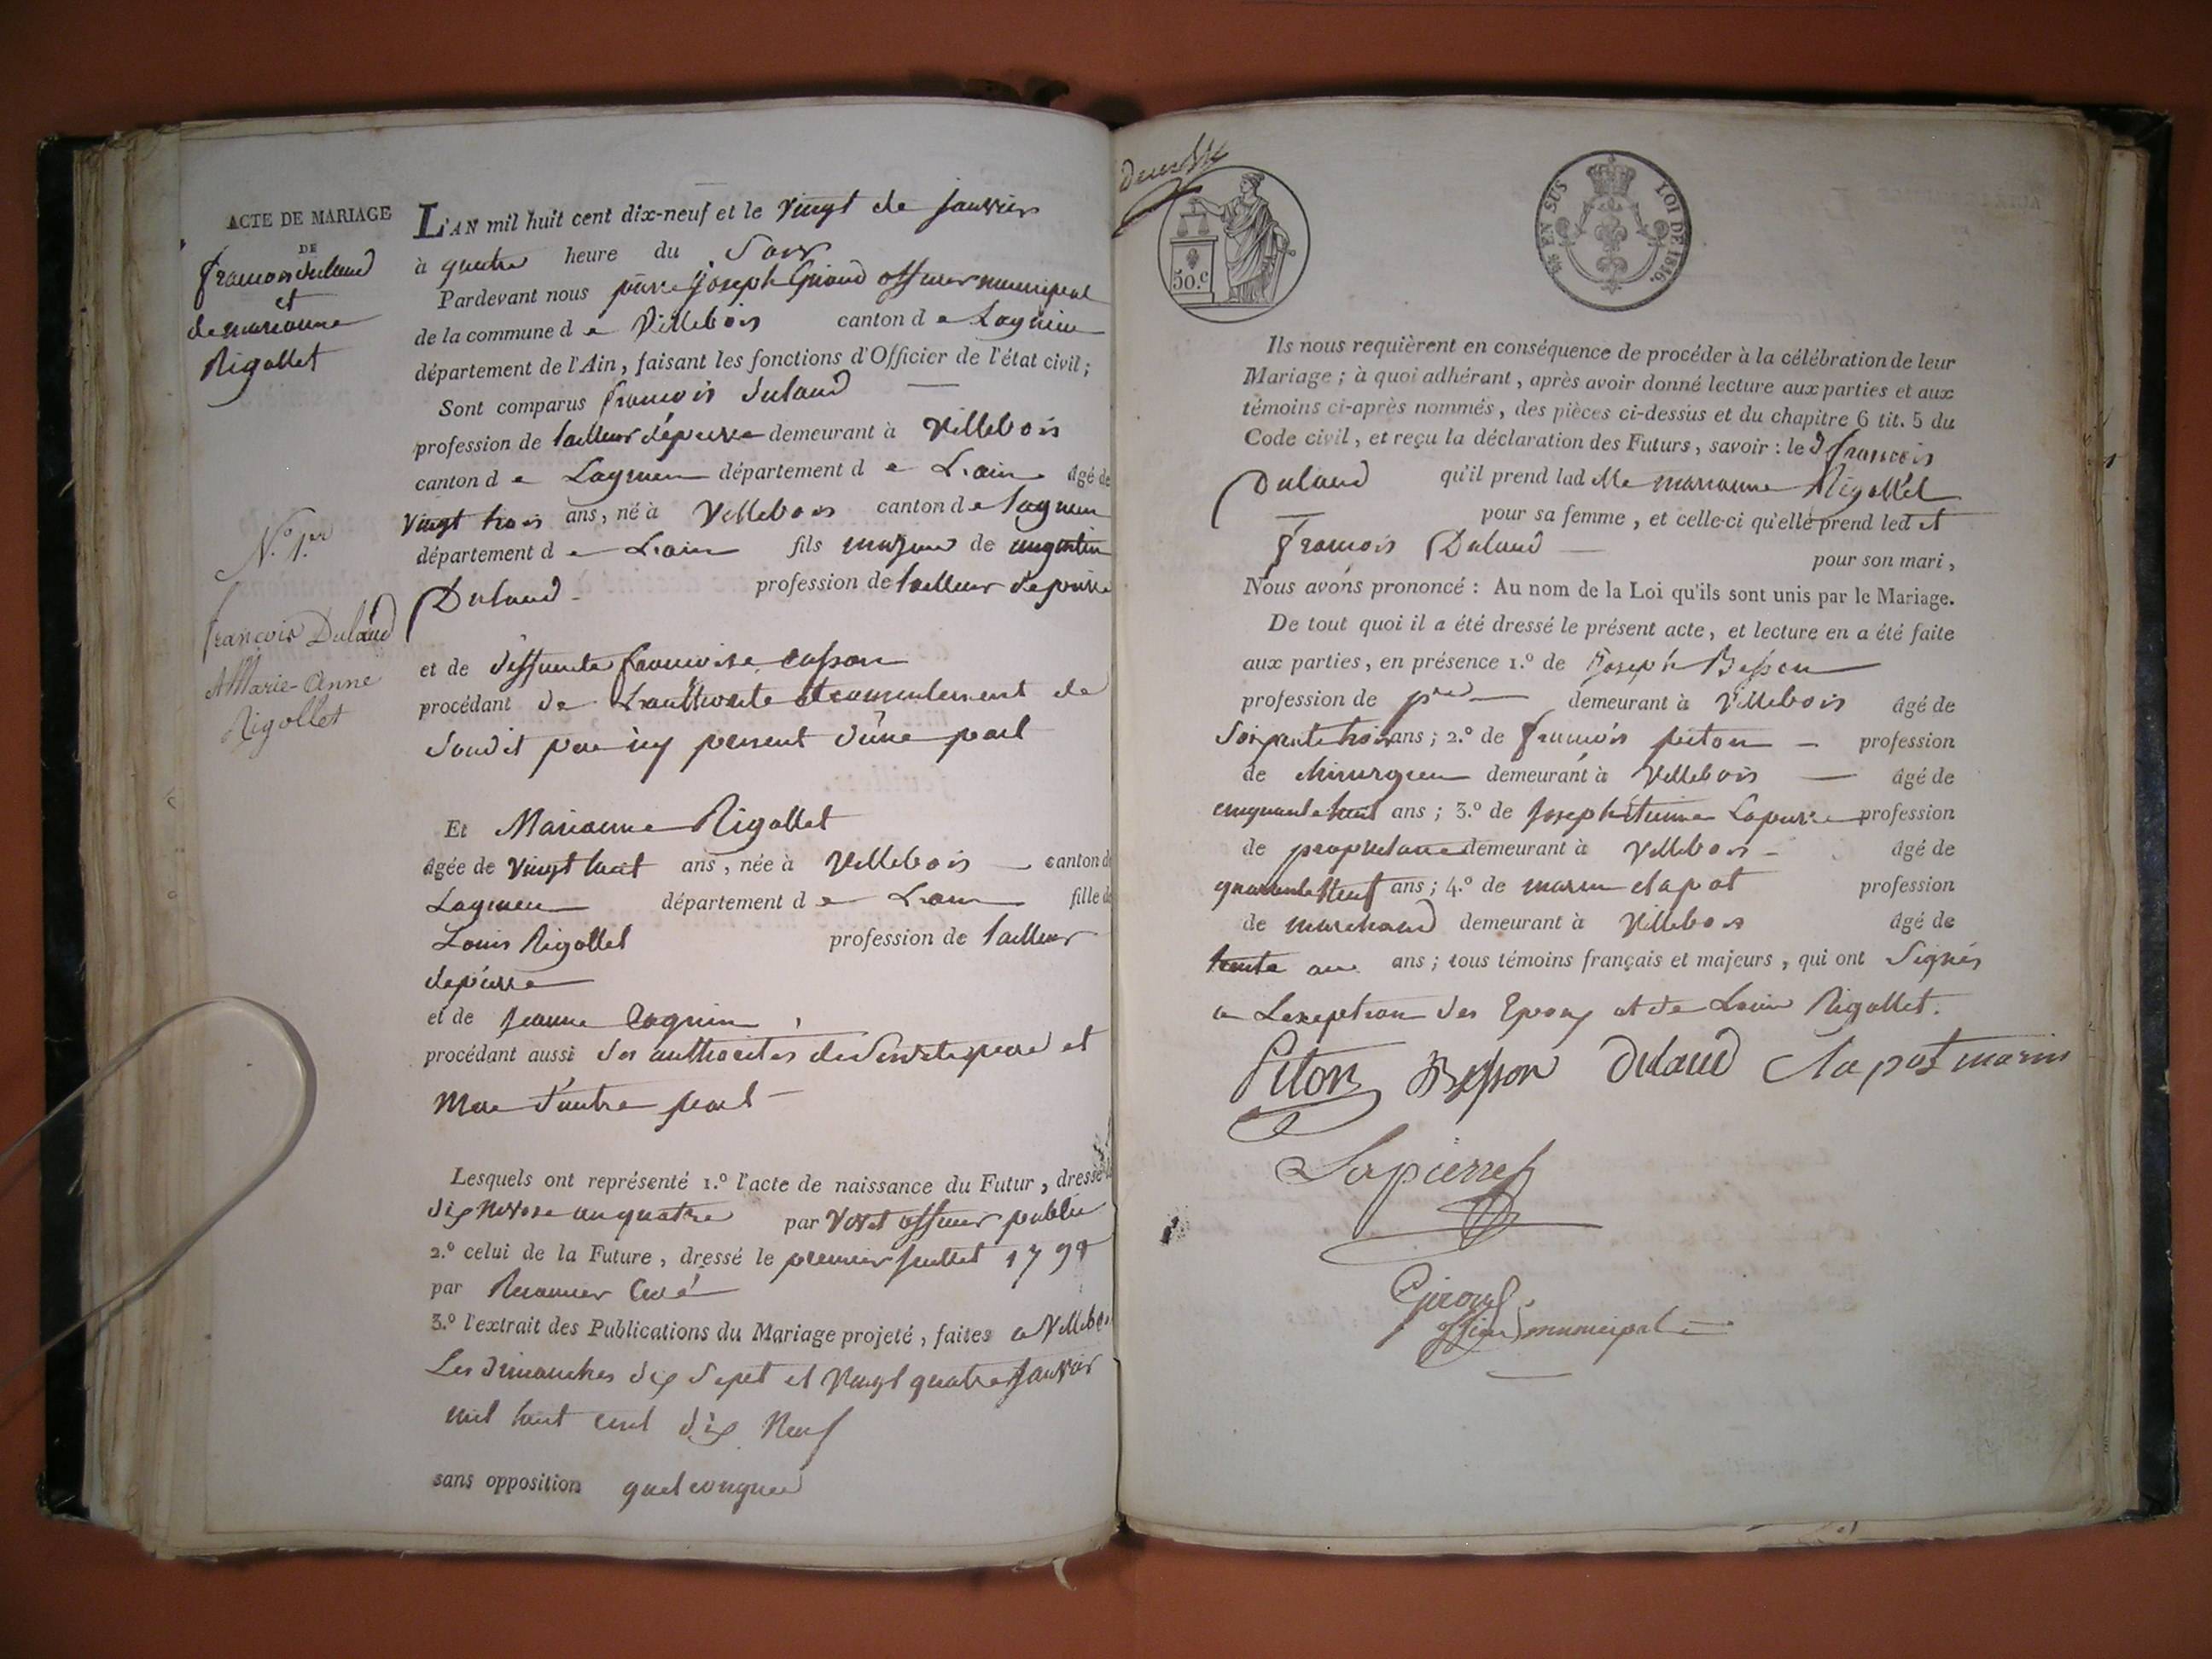 ACTE DE MARIAGE
DE
francois dulaud
et
de marianne
Rigollet
N.o 1.er
françois Dulaud
& Marie-Anne
Rigollet
L'AN mil huit cent dix-neuf et le vingt de janvier
à quatre heure du Soir
Pardevant nous pierre joseph Giroud officier municipal
de la commune d e Villebois canton d e Lagnieu
département de l'Ain, faisant les fonctions d'Officier de l'état civil;
Sont comparus francois dulaud
profession de tailleur de pierre demeurant à Villebois
canton d e Lagnieu département d e L'ain âgé de
vingt trois ans, né à Villebois canton de lagnieu
département d e L'ain fils majeur de augustin
Dulaud profession de tailleur de pierre
et de deffunte francoise
procédant de L'authorité et consentement de
Son dit pere icy present d'une part
Et Marianne Rigollet
âgée de vingt huit ans, née à Villebois canton de
Lagnieu département d e L'ain fille de
Louis Rigollet profession de tailleur
de pierre
et de jeanne Coquin,
procédant aussi des authorités de Sesdits pere et
Mere d'autre part
Lesquels ont représenté 1.º l'acte de naissance du Futur, dressé le
dix nivose an quatre par officier public
2.º celui de la Future, dressé le premier juillet
par Curé
3.º l'extrait des Publications du Mariage projeté, faites a Villebois
Les dimanches dix Sept et Vingt quatre janvier
mil huit cent dix Neuf
sans opposition quelconque
50.c
EN SUS
LOI DE 1816.
Ils nous requièrent en conséquence de procéder à la célébration de leur
Mariage; à quoi adhérant, après avoir donné lecture aux parties et aux
témoins ci-après nommés, des pièces ci-dessus et du chapitre 6 tit. 5 du
Code civil, et reçu la déclaration des Futurs, savoir: le d francois
Dulaud qu'il prend lad elle marianne Rigollet
pour sa femme, et celle-ci qu'elle prend led et
francois Dulaud pour son mari,
Nous avons prononcé: Au nom de la Loi qu'ils sont unis par le Mariage.
De tout quoi il a été dressé le présent acte, et lecture en a été faite
aux parties, en présence 1.º de joseph Besson
profession de pre demeurant à Villebois âgé de
Soixante trois ans; 2.º de francois piton profession
de chirurgien demeurant à Villebois âgé de
cinquante huit ans; 3.º de joseph étienne Lapierre profession
de proprietaire demeurant à Villebois âgé de
quarante Neuf ans; 4.º de marin clapot profession
de marchand demeurant à Villebois âgé de
trente ans; tous témoins français et majeurs, qui ont Signés
a L'exeption des Epoux et de Louis Rigollet.
Piton Besson dulaud Clapot marin
Lapierre
Giroud
officier municipal